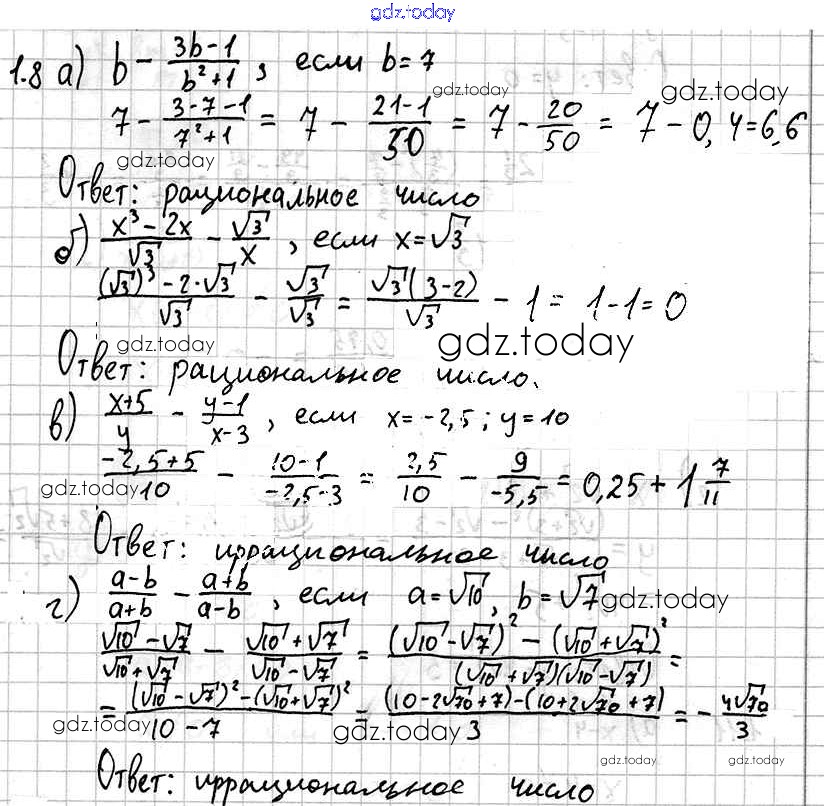 gdz.today
1.8 а) b - (3b-1)/(b²+1), если b=7
gdz.today gdz.today
7 - (3-7-1)/(7²+1) = 7 - (21-1)/50 = 7 - 20/50 = 7-0,4=6,6
gdz.today
Ответ: рациональное число
б) (x³-2x)/√3 - √3/x, если x=√3
((√3)³-2·√3)/√3 - √3/√3 = √3(3-2)/√3 - 1 = 1-1=0
gdz.today gdz.today
Ответ: рациональное число.
в) (x+5)/y - (y-1)/(x-3), если x=-2,5; y=10
(-2,5+5)/10 - (10-1)/(-2,5-3) = 2,5/10 - 9/(-5,5) = 0,25 + 1 7/11
gdz.today
Ответ: иррациональное число
г) (a-b)/(a+b) - (a+b)/(a-b), если a=√10, b=√7
gdz.today
(√10-√7)/(√10+√7) - (√10+√7)/(√10-√7) = ((√10-√7)²-(√10+√7)²)/((√10+√7)(√10-√7)) =
= ((√10-√7)²-(√10+√7)²)/(10-7) = ((10-2√70+7)-(10+2√70+7))/3 = -4√70/3
gdz.today gdz.today
gdz.today gdz.today
Ответ: иррациональное число